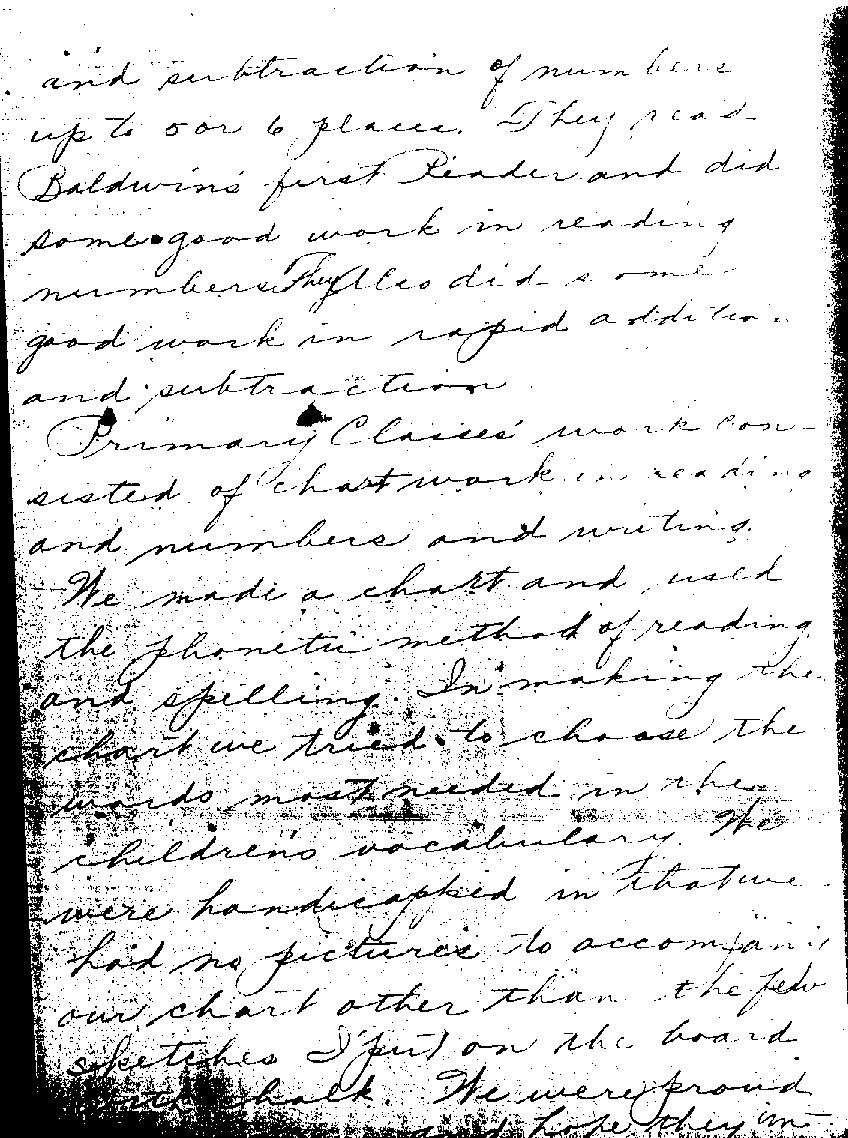 and subtraction of numbers
up to 5 or 6 places. They read
Baldwin's first Reader and did
some good work in reading
numbers. They Also did some
good work in rapid addition
and subtraction
Primary Classes' work con-
sisted of chart work in reading
and numbers and writing.
We made a chart and used
the phonetic method of reading
and spelling. In making the
chart we tried to choose the
words most needed in the
children's vocabulary. We
were handicapped in that we
had no pictures to accompany
our chart other than the few
sketches I put on the board
with chalk. We were proud
and hope they im-